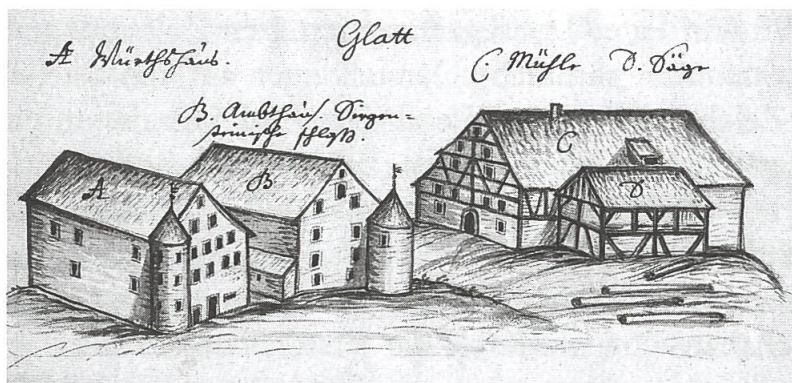 Glatt
A Würthshaus.
B. Ambthaus. Siegen=
steinische schloß.
C. Mühle D. Säge
A
B
C
D